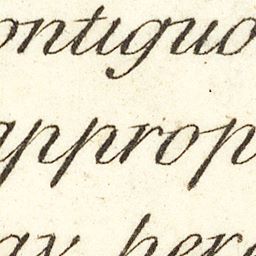 ontiguo
approp
ay here